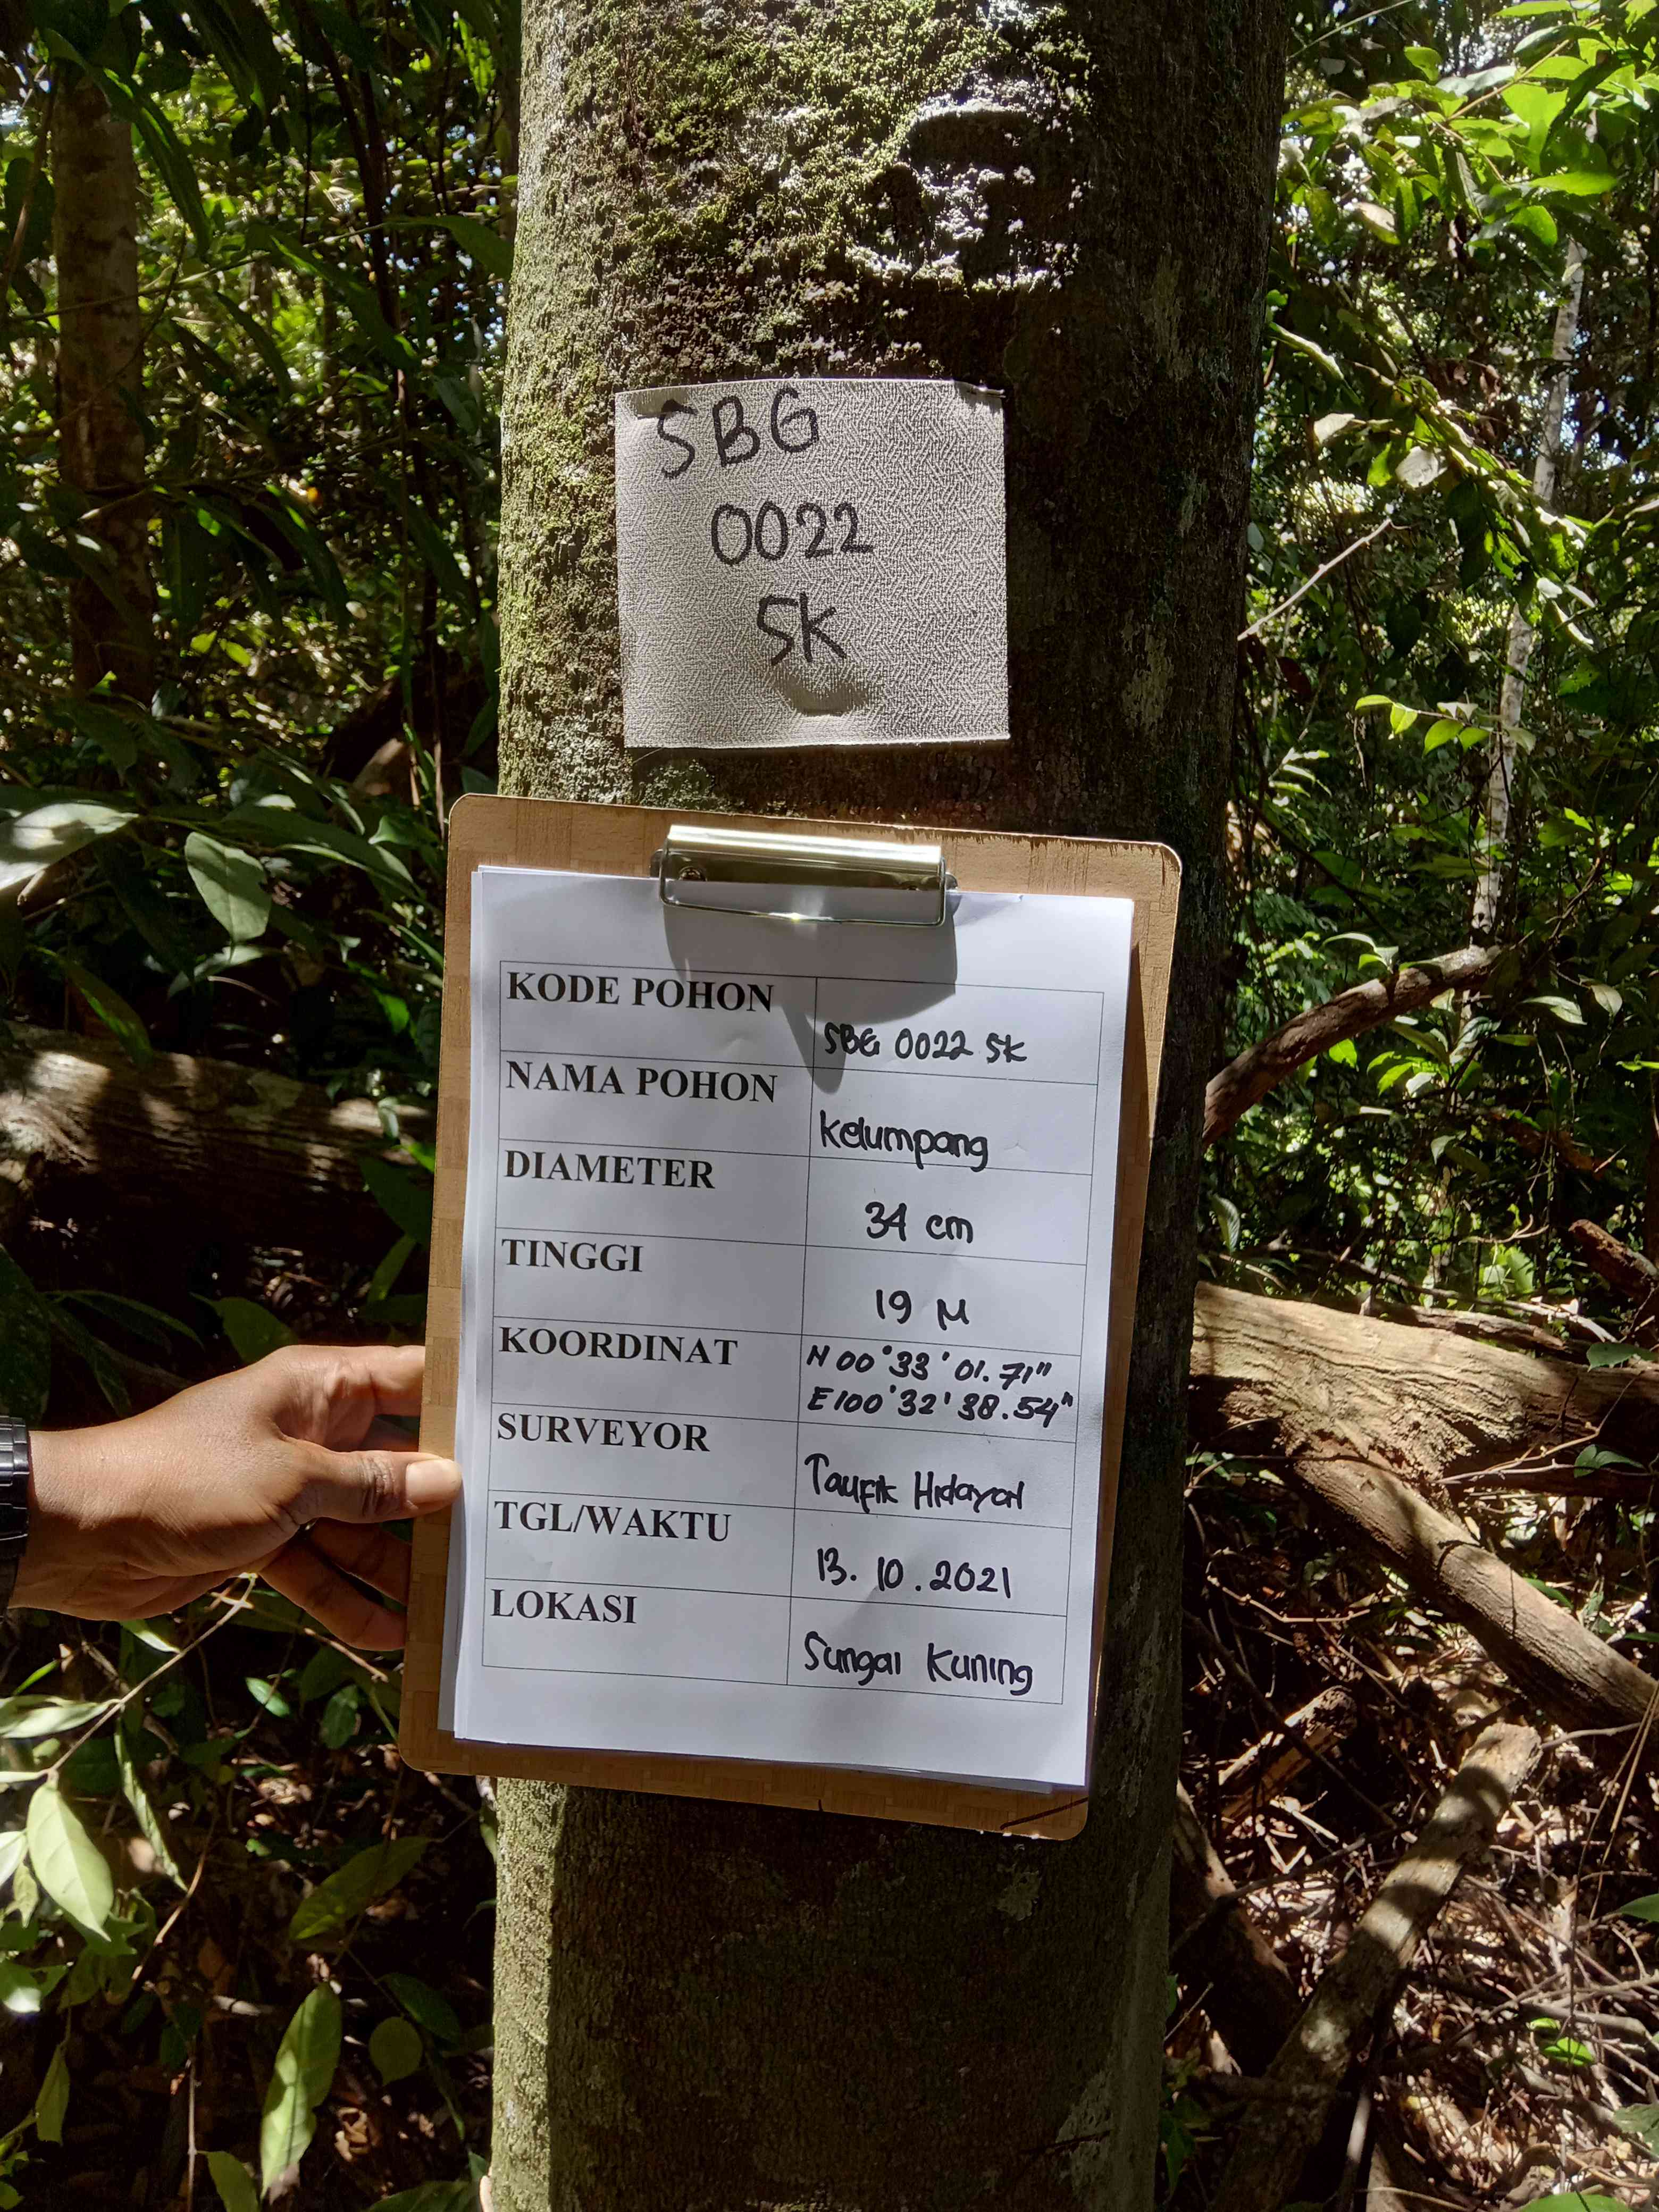 SBG
0022
SK
KODE POHON
SBG 0022 SK
NAMA POHON
Kelumpang
DIAMETER
34 cm
TINGGI
19 M
KOORDINAT
N 00°33'01.71"
E 100°32'38.54"
SURVEYOR
Taufik Hidayat
TGL/WAKTU
13.10.2021
LOKASI
Sungai Kuning